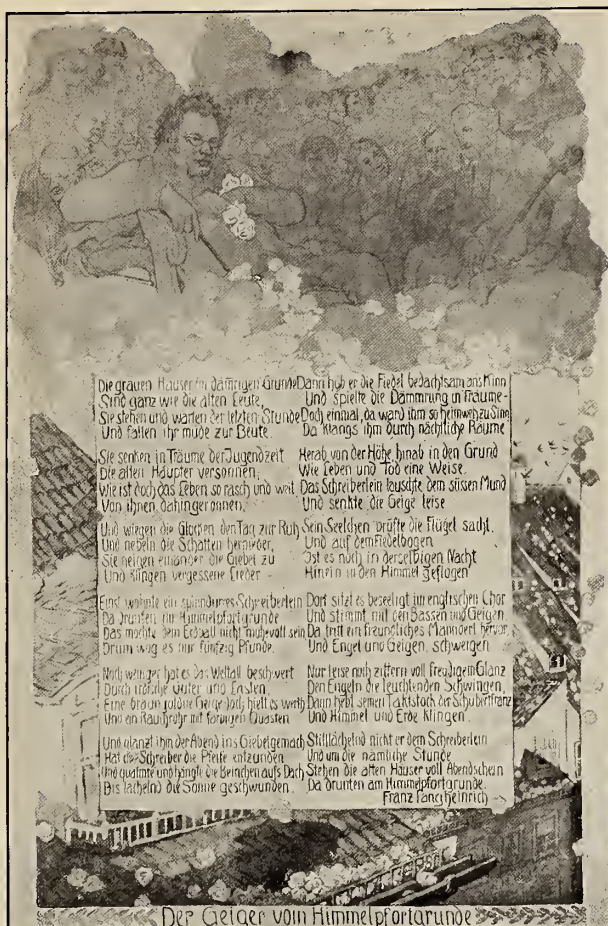 Die grauen Häuser im dämrigen Grunde
Sind ganz wie die alten Leute,
Sie stehen und warten der letzten Stunde
Und fallen ihr müde zur Beute.
Sie senken in Träume der Jugendzeit
Die alten Häupter versonnen,
Wie ist doch das Leben so rasch und weit
Von ihnen dahingeronnen.
Und wiegen die Glocken den Tag zur Ruh
Und nebeln die Schatten hernieder,
Sie neigen einander die Giebel zu
Und singen vergessene Lieder
Einst wohnte ein spindürres Schreiberlein
Da drunten im Himmelpfortgrunde
Das mochte dem Erdball nicht mühevoll sein
Drum wog es nur fünfzig Pfunde.
Noch weniger hat es das Weltall beschwert
Durch irdische Güter und Lasten,
Eine braun goldne Geige doch hielt es werth
Und ein Rauchrohr mit farbigen Quasten
Und glänzt ihm der Abend ins Giebelgemach
Hat der Schreiber die Pfeife entzunden
Und qualmte und hängt die Beinchen aufs Dach
Bis lächelnd die Sonne geschwunden.
Dann hub er die Fiedel bedachtsam ans Kinn
Und spielte die Dämmrung in Träume-
Doch einmal, da ward ihm so heimweh zu Sinn
Da klangs ihm durch nächtliche Räume
Herab von der Höhe hinab in den Grund
Wie Leben und Tod eine Weise.
Das Schreiberlein lauschte dem süssen Mund
Und senkte die Geige leise
Sein Seelchen prüfte die Flügel sacht,
Und auf dem Fiedelbogen
Ist es noch in derselbigen Nacht
Hinein in den Himmel geflogen
Dort sitzt es beseeligt im englischen Chor
Und stimmt mit den Bässen und Geigen
Da tritt ein freundliches Mannderl hervor,
Und Engel und Geigen, schweigen
Nur leise noch zittern voll freudigem Glanz
Den Engeln die leuchtenden Schwingen,
Dann hebt seinen Taktstock der Schubertfranz
Und Himmel und Erde klingen.
Stilllächelnd nickt er dem Schreiberlein
Und um die nämliche Stunde
Stehen die alten Häuser voll Abendschein
Da drunten am Himmelpfortgrunde.
Franz Langheinrich
Der Geiger vom Himmelpfortgrunde